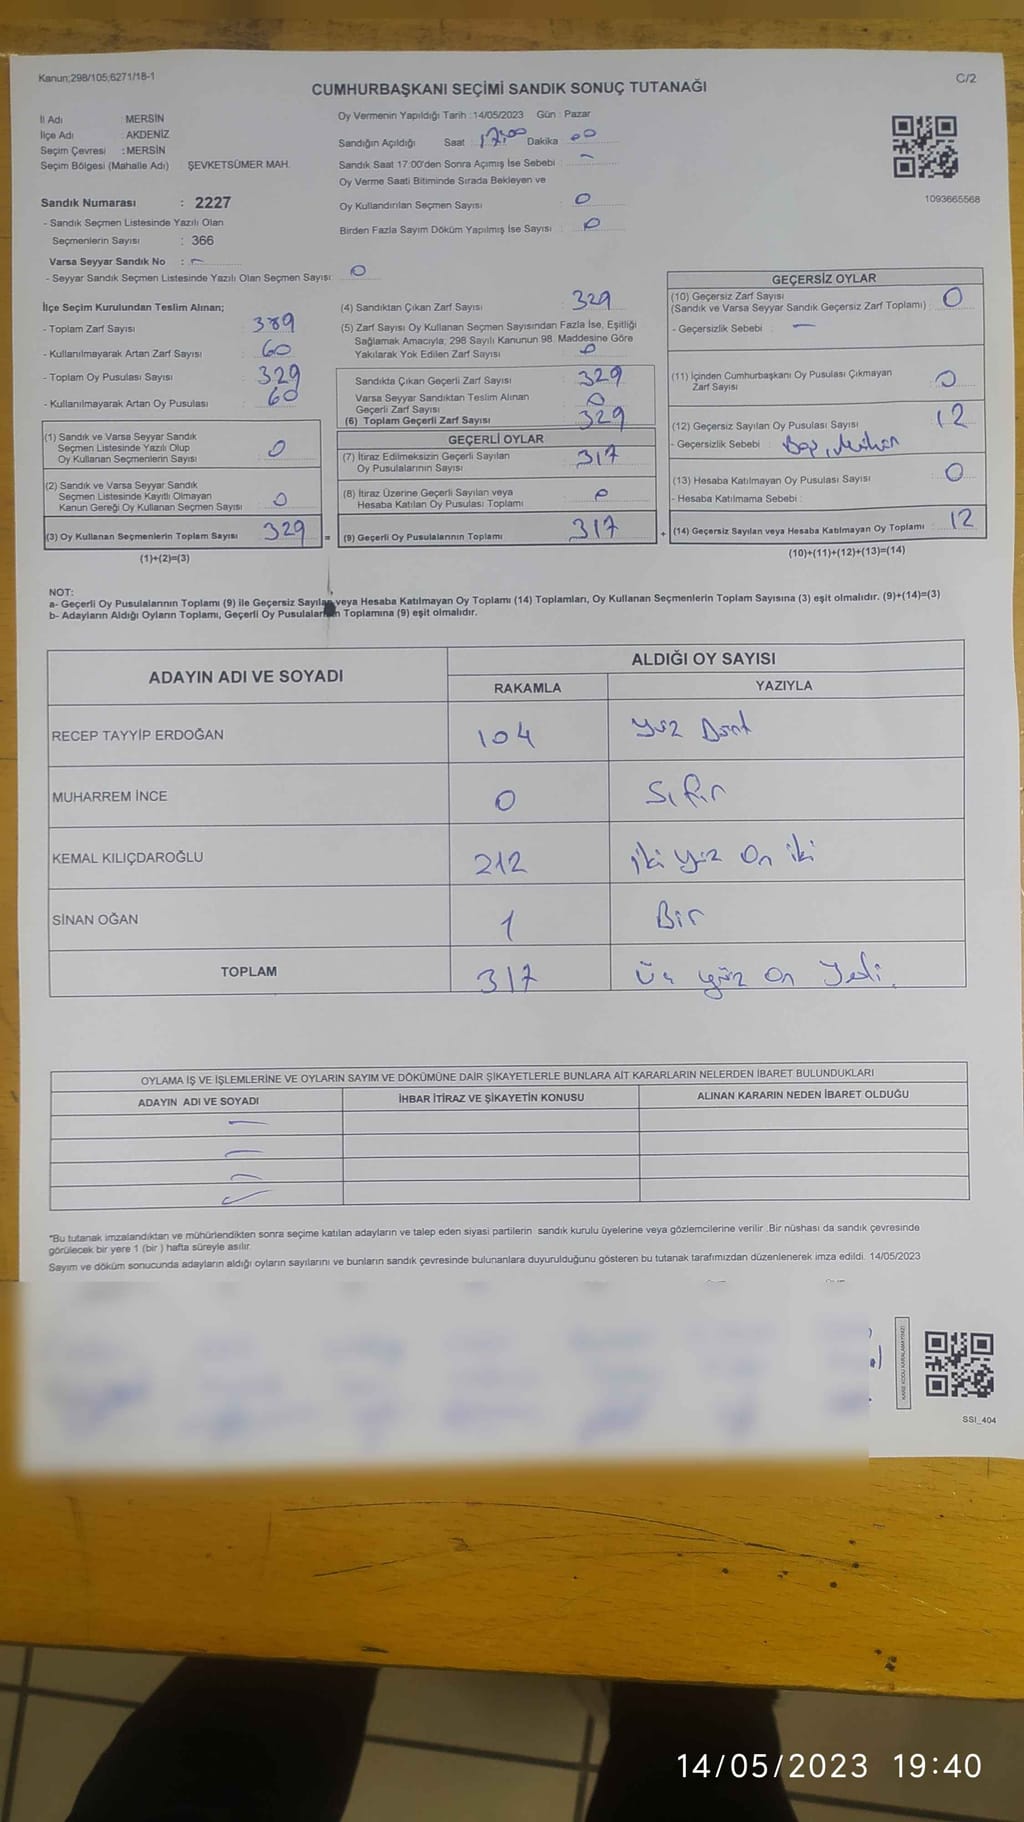 Kanun;298/105;6271/18-1
CUMHURBAŞKANI SEÇİMİ SANDIK SONUÇ TUTANAĞI
C/2
İl Adı : MERSİN
İlçe Adı : AKDENİZ
Seçim Çevresi : MERSİN
Seçim Bölgesi (Mahalle Adı) ŞEVKETSÜMER MAH.
Sandık Numarası : 2227
- Sandık Seçmen Listesinde Yazılı Olan
Seçmenlerin Sayısı : 366
Varsa Seyyar Sandık No : -
- Seyyar Sandık Seçmen Listesinde Yazılı Olan Seçmen Sayısı: 0
Oy Vermenin Yapıldığı Tarih :14/05/2023 Gün : Pazar
Sandığın Açıldığı Saat 17:00 Dakika 00
Sandık Saat 17:00'den Sonra Açımış İse Sebebi : -
Oy Verme Saati Bitiminde Sırada Bekleyen ve
Oy Kullandırılan Seçmen Sayısı : 0
Birden Fazla Sayım Döküm Yapılmış İse Sayısı : 0
1093665568
İlçe Seçim Kurulundan Teslim Alınan;
- Toplam Zarf Sayısı : 389
- Kullanılmayarak Artan Zarf Sayısı : 60
- Toplam Oy Pusulası Sayısı : 329
- Kullanılmayarak Artan Oy Pusulası : 60
(1) Sandık ve Varsa Seyyar Sandık
Seçmen Listesinde Yazılı Olup
Oy Kullanan Seçmenlerin Sayısı : 0
(2) Sandık ve Varsa Seyyar Sandık
Seçmen Listesinde Kayıtlı Olmayan
Kanun Gereği Oy Kullanan Seçmen Sayısı : 0
(3) Oy Kullanan Seçmenlerin Toplam Sayısı : 329
(1)+(2)=(3)
(4) Sandıktan Çıkan Zarf Sayısı : 329
(5) Zarf Sayısı Oy Kullanan Seçmen Sayısından Fazla İse, Eşitliği
Sağlamak Amacıyla; 298 Sayılı Kanunun 98. Maddesine Göre
Yakılarak Yok Edilen Zarf Sayısı : 0
Sandıkta Çıkan Geçerli Zarf Sayısı : 329
Varsa Seyyar Sandıktan Teslim Alınan
Geçerli Zarf Sayısı : 0
(6) Toplam Geçerli Zarf Sayısı : 329
GEÇERLİ OYLAR
(7) İtiraz Edilmeksizin Geçerli Sayılan
Oy Pusulalarının Sayısı : 317
(8) İtiraz Üzerine Geçerli Sayılan veya
Hesaba Katılan Oy Pusulası Toplamı : 0
= (9) Geçerli Oy Pusulalarının Toplamı : 317
GEÇERSİZ OYLAR
(10) Geçersiz Zarf Sayısı
(Sandık ve Varsa Seyyar Sandık Geçersiz Zarf Toplamı) : 0
- Geçersizlik Sebebi : -
(11) İçinden Cumhurbaşkanı Oy Pusulası Çıkmayan
Zarf Sayısı : 0
(12) Geçersiz Sayılan Oy Pusulası Sayısı : 12
- Geçersizlik Sebebi :
(13) Hesaba Katılmayan Oy Pusulası Sayısı : 0
- Hesaba Katılmama Sebebi :
+ (14) Geçersiz Sayılan veya Hesaba Katılmayan Oy Toplamı : 12
(10)+(11)+(12)+(13)=(14)
NOT:
a- Geçerli Oy Pusulalarının Toplamı (9) ile Geçersiz Sayılan veya Hesaba Katılmayan Oy Toplamı (14) Toplamları, Oy Kullanan Seçmenlerin Toplam Sayısına (3) eşit olmalıdır. (9)+(14)=(3)
b- Adayların Aldığı Oyların Toplamı, Geçerli Oy Pusulalarının Toplamına (9) eşit olmalıdır.
ADAYIN ADI VE SOYADI
ALDIĞI OY SAYISI
RAKAMLA YAZIYLA
RECEP TAYYİP ERDOĞAN 104 Yüz Dört
MUHARREM İNCE 0 Sıfır
KEMAL KILIÇDAROĞLU 212 iki yüz On iki
SİNAN OĞAN 1 Bir
TOPLAM 317 Üç yüz On Yedi.
OYLAMA İŞ VE İŞLEMLERİNE VE OYLARIN SAYIM VE DÖKÜMÜNE DAİR ŞİKAYETLERLE BUNLARA AİT KARARLARIN NELERDEN İBARET BULUNDUKLARI
ADAYIN ADI VE SOYADI İHBAR İTİRAZ VE ŞİKAYETİN KONUSU ALINAN KARARIN NEDEN İBARET OLDUĞU
"Bu tutanak imzalandıktan ve mühürlendikten sonra seçime katılan adayların ve talep eden siyasi partilerin sandık kurulu üyelerine veya gözlemcilerine verilir .Bir nüshası da sandık çevresinde
görülecek bir yere 1 (bir ) hafta süreyle asılır.
Sayım ve döküm sonucunda adayların aldığı oyların sayılarını ve bunların sandık çevresinde bulunanlara duyurulduğunu gösteren bu tutanak tarafımızdan düzenlenerek imza edildi. 14/05/2023
KARE KODU KARALAMAYINIZ!
SSI_404
14/05/2023 19:40